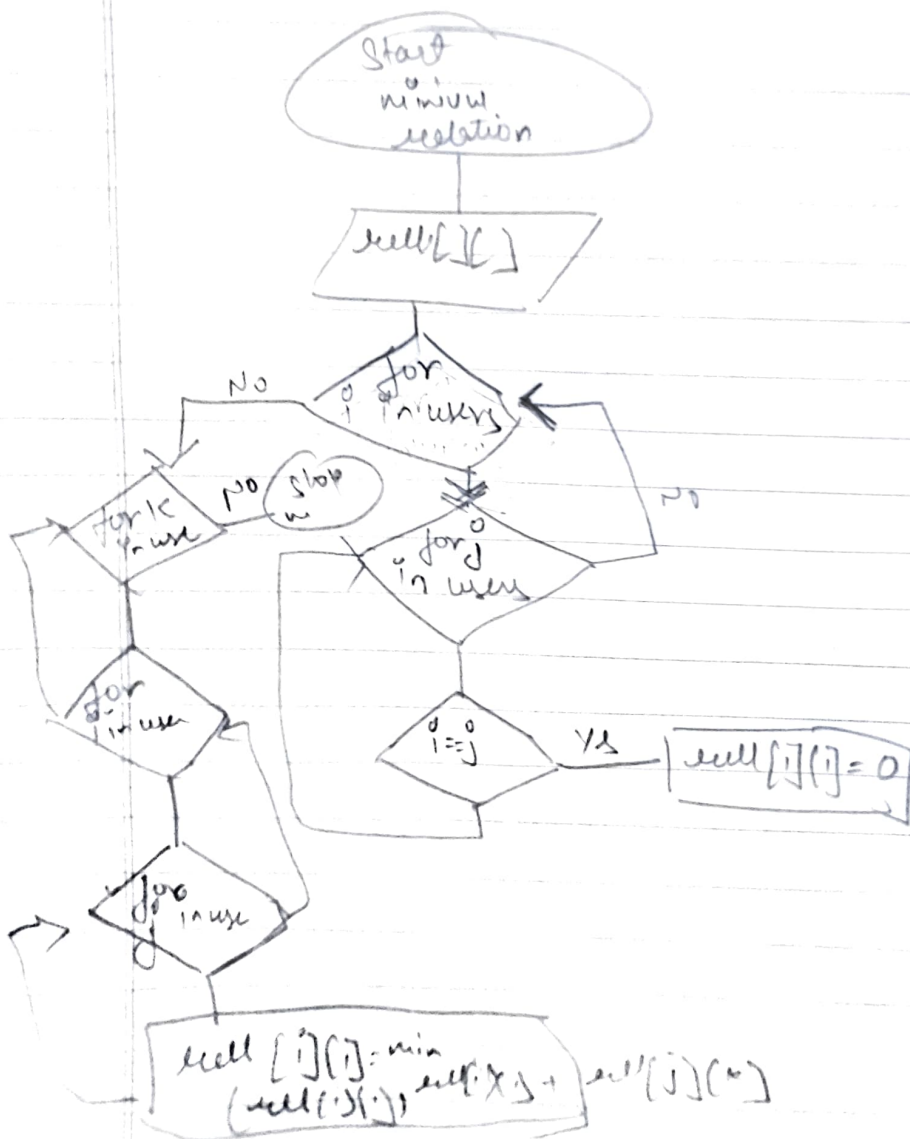 Start
minium
relation
rell[][]
for
i in users
No
for k
in use
NO
Stop
for j
in users
NO
for
i in user
i==j
Yes
rell[i][i]=0
for
j in use
rell[i][j]=min
(rell[i][j],